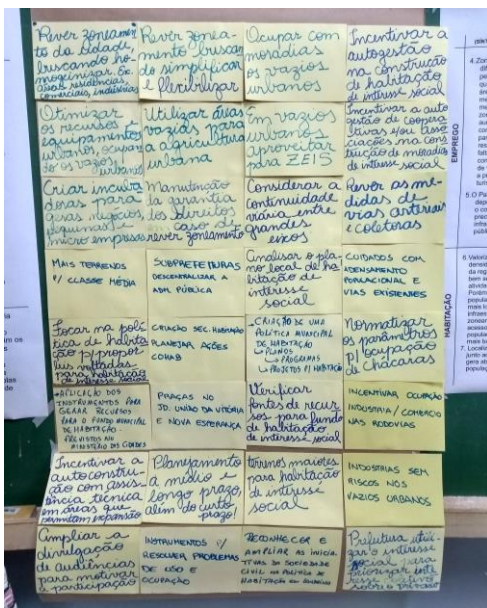 Rever zoneamen
to da cidade,
buscando ho-
mogeinizar. Ex.
áreas residenciais,
comerciais, indústrias
Rever zonea-
mento buscan
do simplificar
e flexibilizar
Ocupar com
moradias
os vazios
urbanos
Incentivar a
autogestão
na construção
de habitação
de interesse social
Otimizar
os recursos e
equipamentos
urbanos, ocupan
do os vazios
urbanos
Utilizar áreas
vazias para
a agricultura
urbana
Em vazios
urbanos
aproveitar
para ZEIS
Incentivar a auto
gestão de coopera
tivas e/ou asso
ciações na cons
trução de moradias
de interesse social
Criar incuba
doras para
geras, negócios
(pequenas) e
micro empresas
Manutenção
da garantia
dos direitos
em caso de
rever zoneamento
Considerar a
continuidade
viária entre
grandes
eixos
Rever as me-
didas de
vias arteriais
e coletoras
MAIS TERRENOS
P/ CLASSE MÉDIA
SUBPREFEITURAS
DESCENTRALIZAR A
ADM. PÚBLICA
o pla-
no local de ha
bitação de
interesse
social
CUIDADOS COM
ADENSAMENTO
POPULACIONAL E
VIAS EXISTENTES
Focar na polí
tica de habita
ção p/ propor
leis voltadas
para habitação
de interesse social
CRIAÇÃO SEC. HABITAÇÃO
PLANEJAR AÇÕES
COHAB
- CRIAÇÃO DE UMA
POLÍTICA MUNICIPAL
DE HABITAÇÃO
↳ PLANOS
↳ PROGRAMAS
↳ PROJETOS P/ HABITAÇÃO
Normatizar
os parâmetros
p/ ocupação
de chácaras
APLICAÇÃO DOS
INSTRUMENTOS PARA
GERAR RECURSOS
PARA O FUNDO MUNICIPAL
DE HABITAÇÃO -
PREVISTOS NO
MINISTÉRIO DAS CIDADES
PRAÇAS NO
JD. UNIÃO DA VITÓRIA
E NOVA ESPERANÇA
Verificar
fontes de recur
sos para fundo
de habitação
de interesse social
INCENTIVAR OCUPAÇÃO
INDUSTRIA / COMERCIO
NAS RODOVIAS
Incentivar a
autoconstru-
ção com assis
tência técnica
em áreas que
permitam expansão
Planejamento
a médio e
longo prazo,
além do curto
prazo!
terrenos maiores
para habitação
de interesse
social
INDÚSTRIAS SEM
RISCOS NOS
VAZIOS URBANOS
Ampliar a
divulgação
de audiências
para motivar
a participação
INSTRUMENTOS P/
RESOLVER PROBLEMAS
DE USO E
OCUPAÇÃO
RECONHECER E
AMPLIAR AS INICIA
TIVAS DA SOCIEDADE
CIVIL NA POLÍTICA DE
HABITAÇÃO
Prefeitura utili-
zar o interesse
social para
priorizar inte
resse coletivo
sobre o privado
EMPREGO
HABITAÇÃO